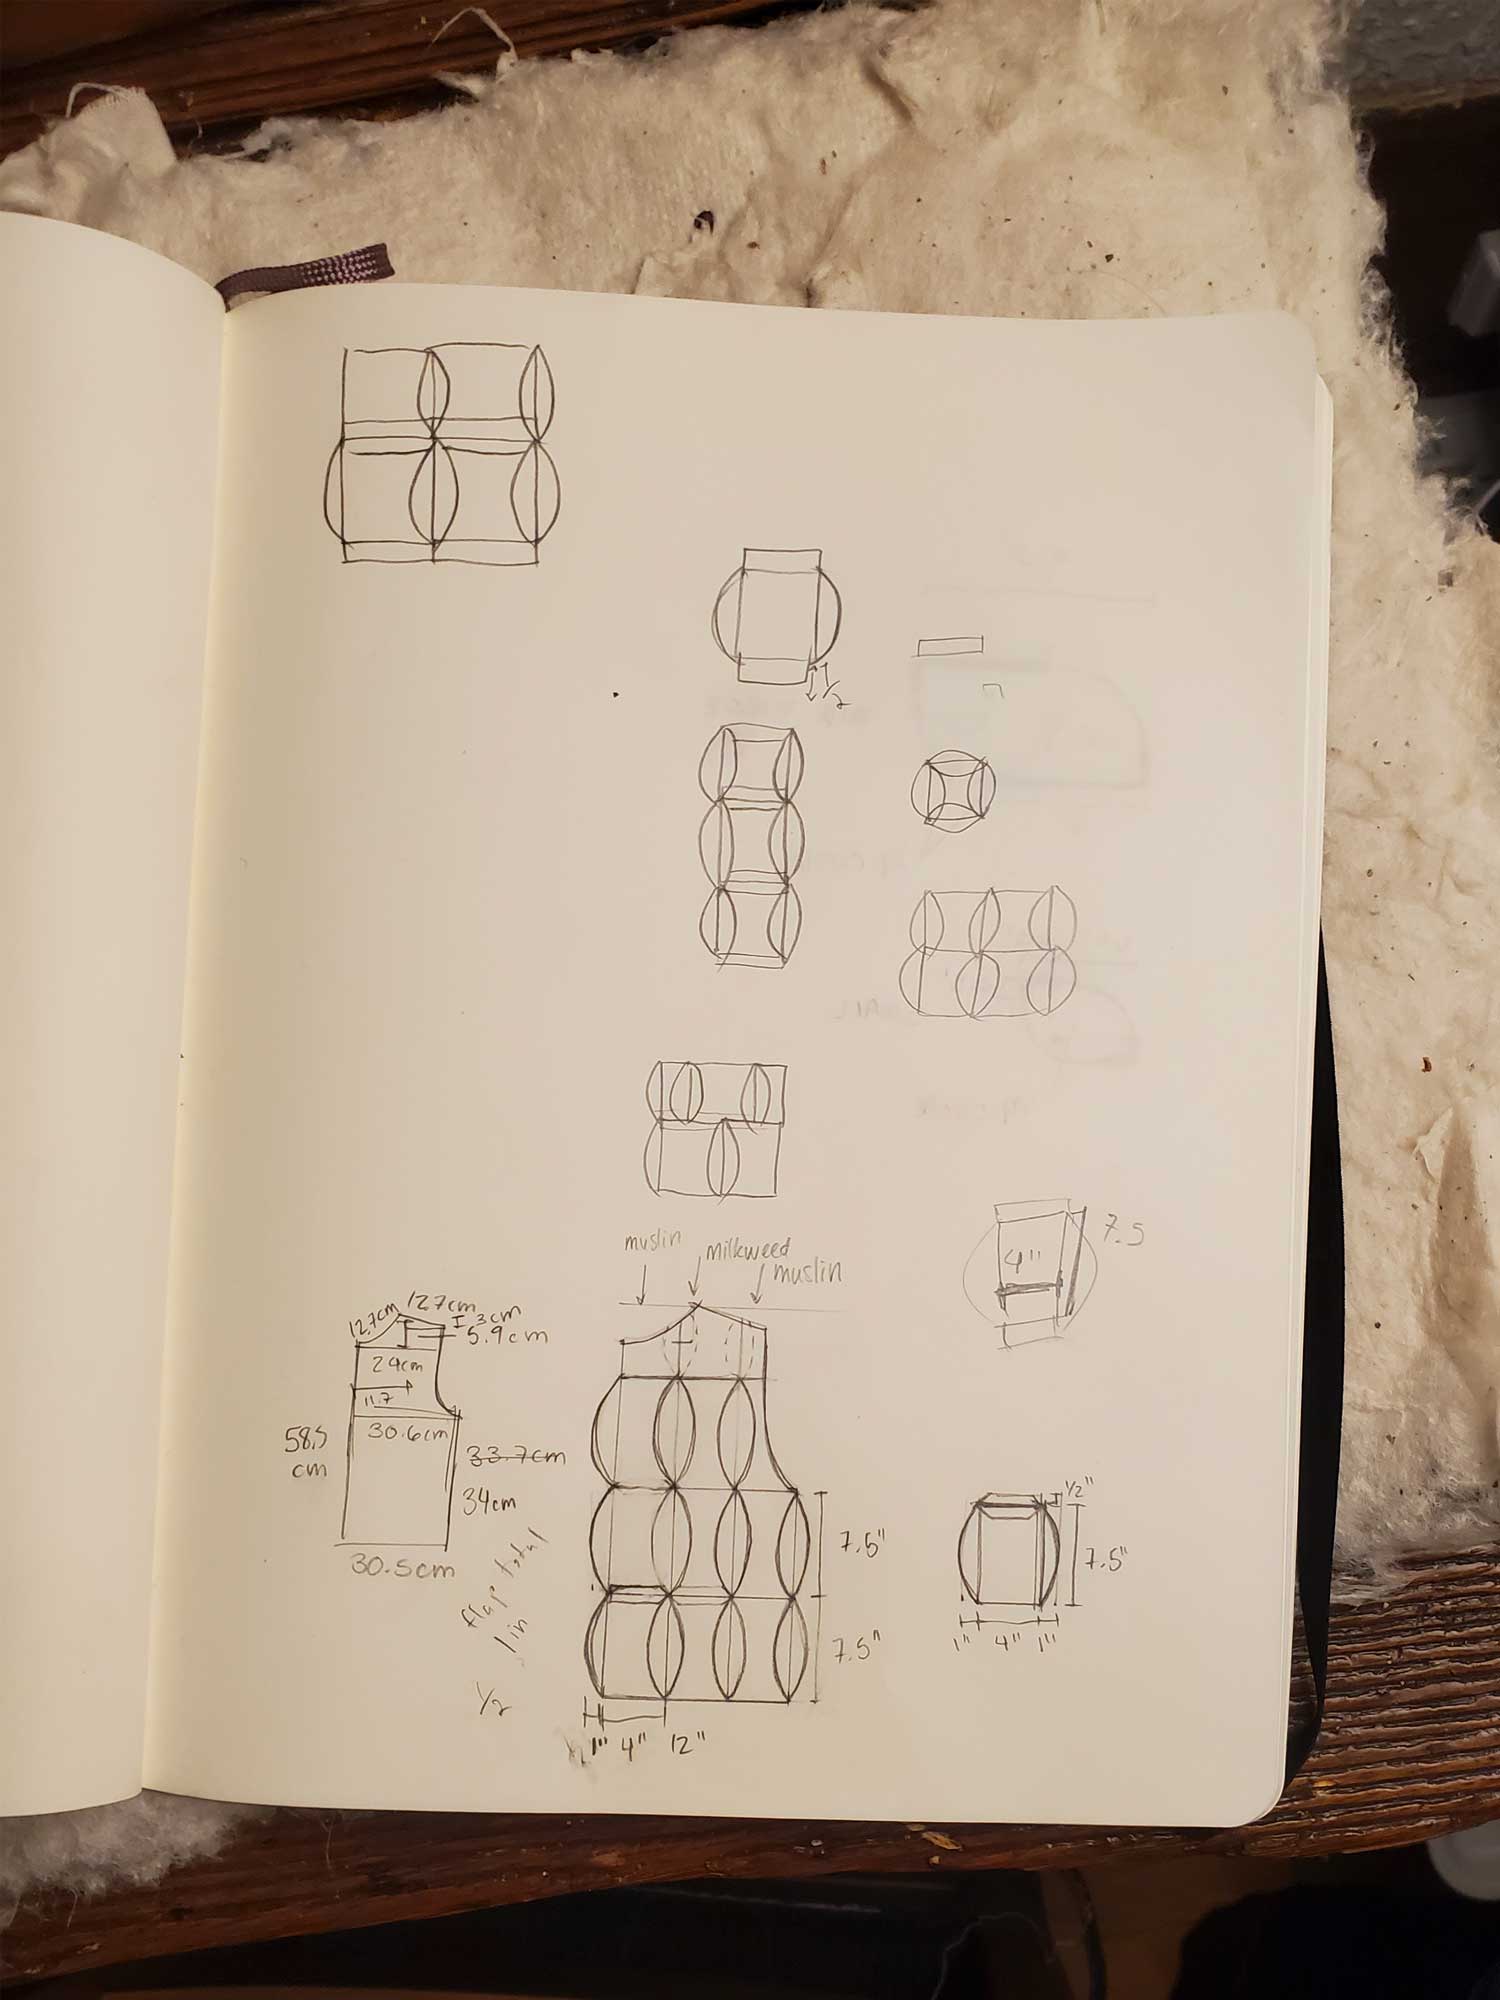 1/2
muslin
milkweed
muslin
7.5
4"
12.7cm
12.7cm
3cm
5.9cm
29cm
11.7
30.6cm
58.5
cm
33.7cm
34cm
30.5cm
flap total
1in
1/2
7.5"
7.5"
1" 4" 12"
1/2"
7.5"
1" 4" 1"